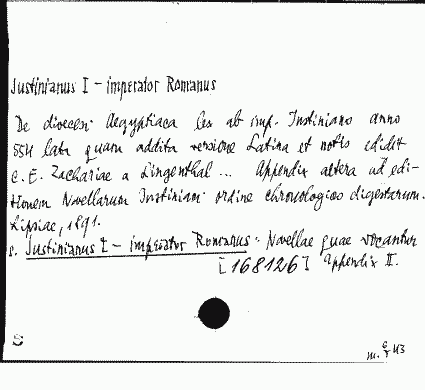 Justinianus I - imperator Romanus
De dioecesi Aegyptiaca lex ab imp. Justiniano anno
554 lata quam addita versione Latina et notis edidit
C. E. Zachariae a Lingenthal ... Appendix altera ad edi-
tionem Novellarum Justiniani ordine chronologico digestarum.
Lipsiae, 1891.
s. Justinianus I - imperator Romanus: Novellae quae vocantur
[168126] Appendix II.
S